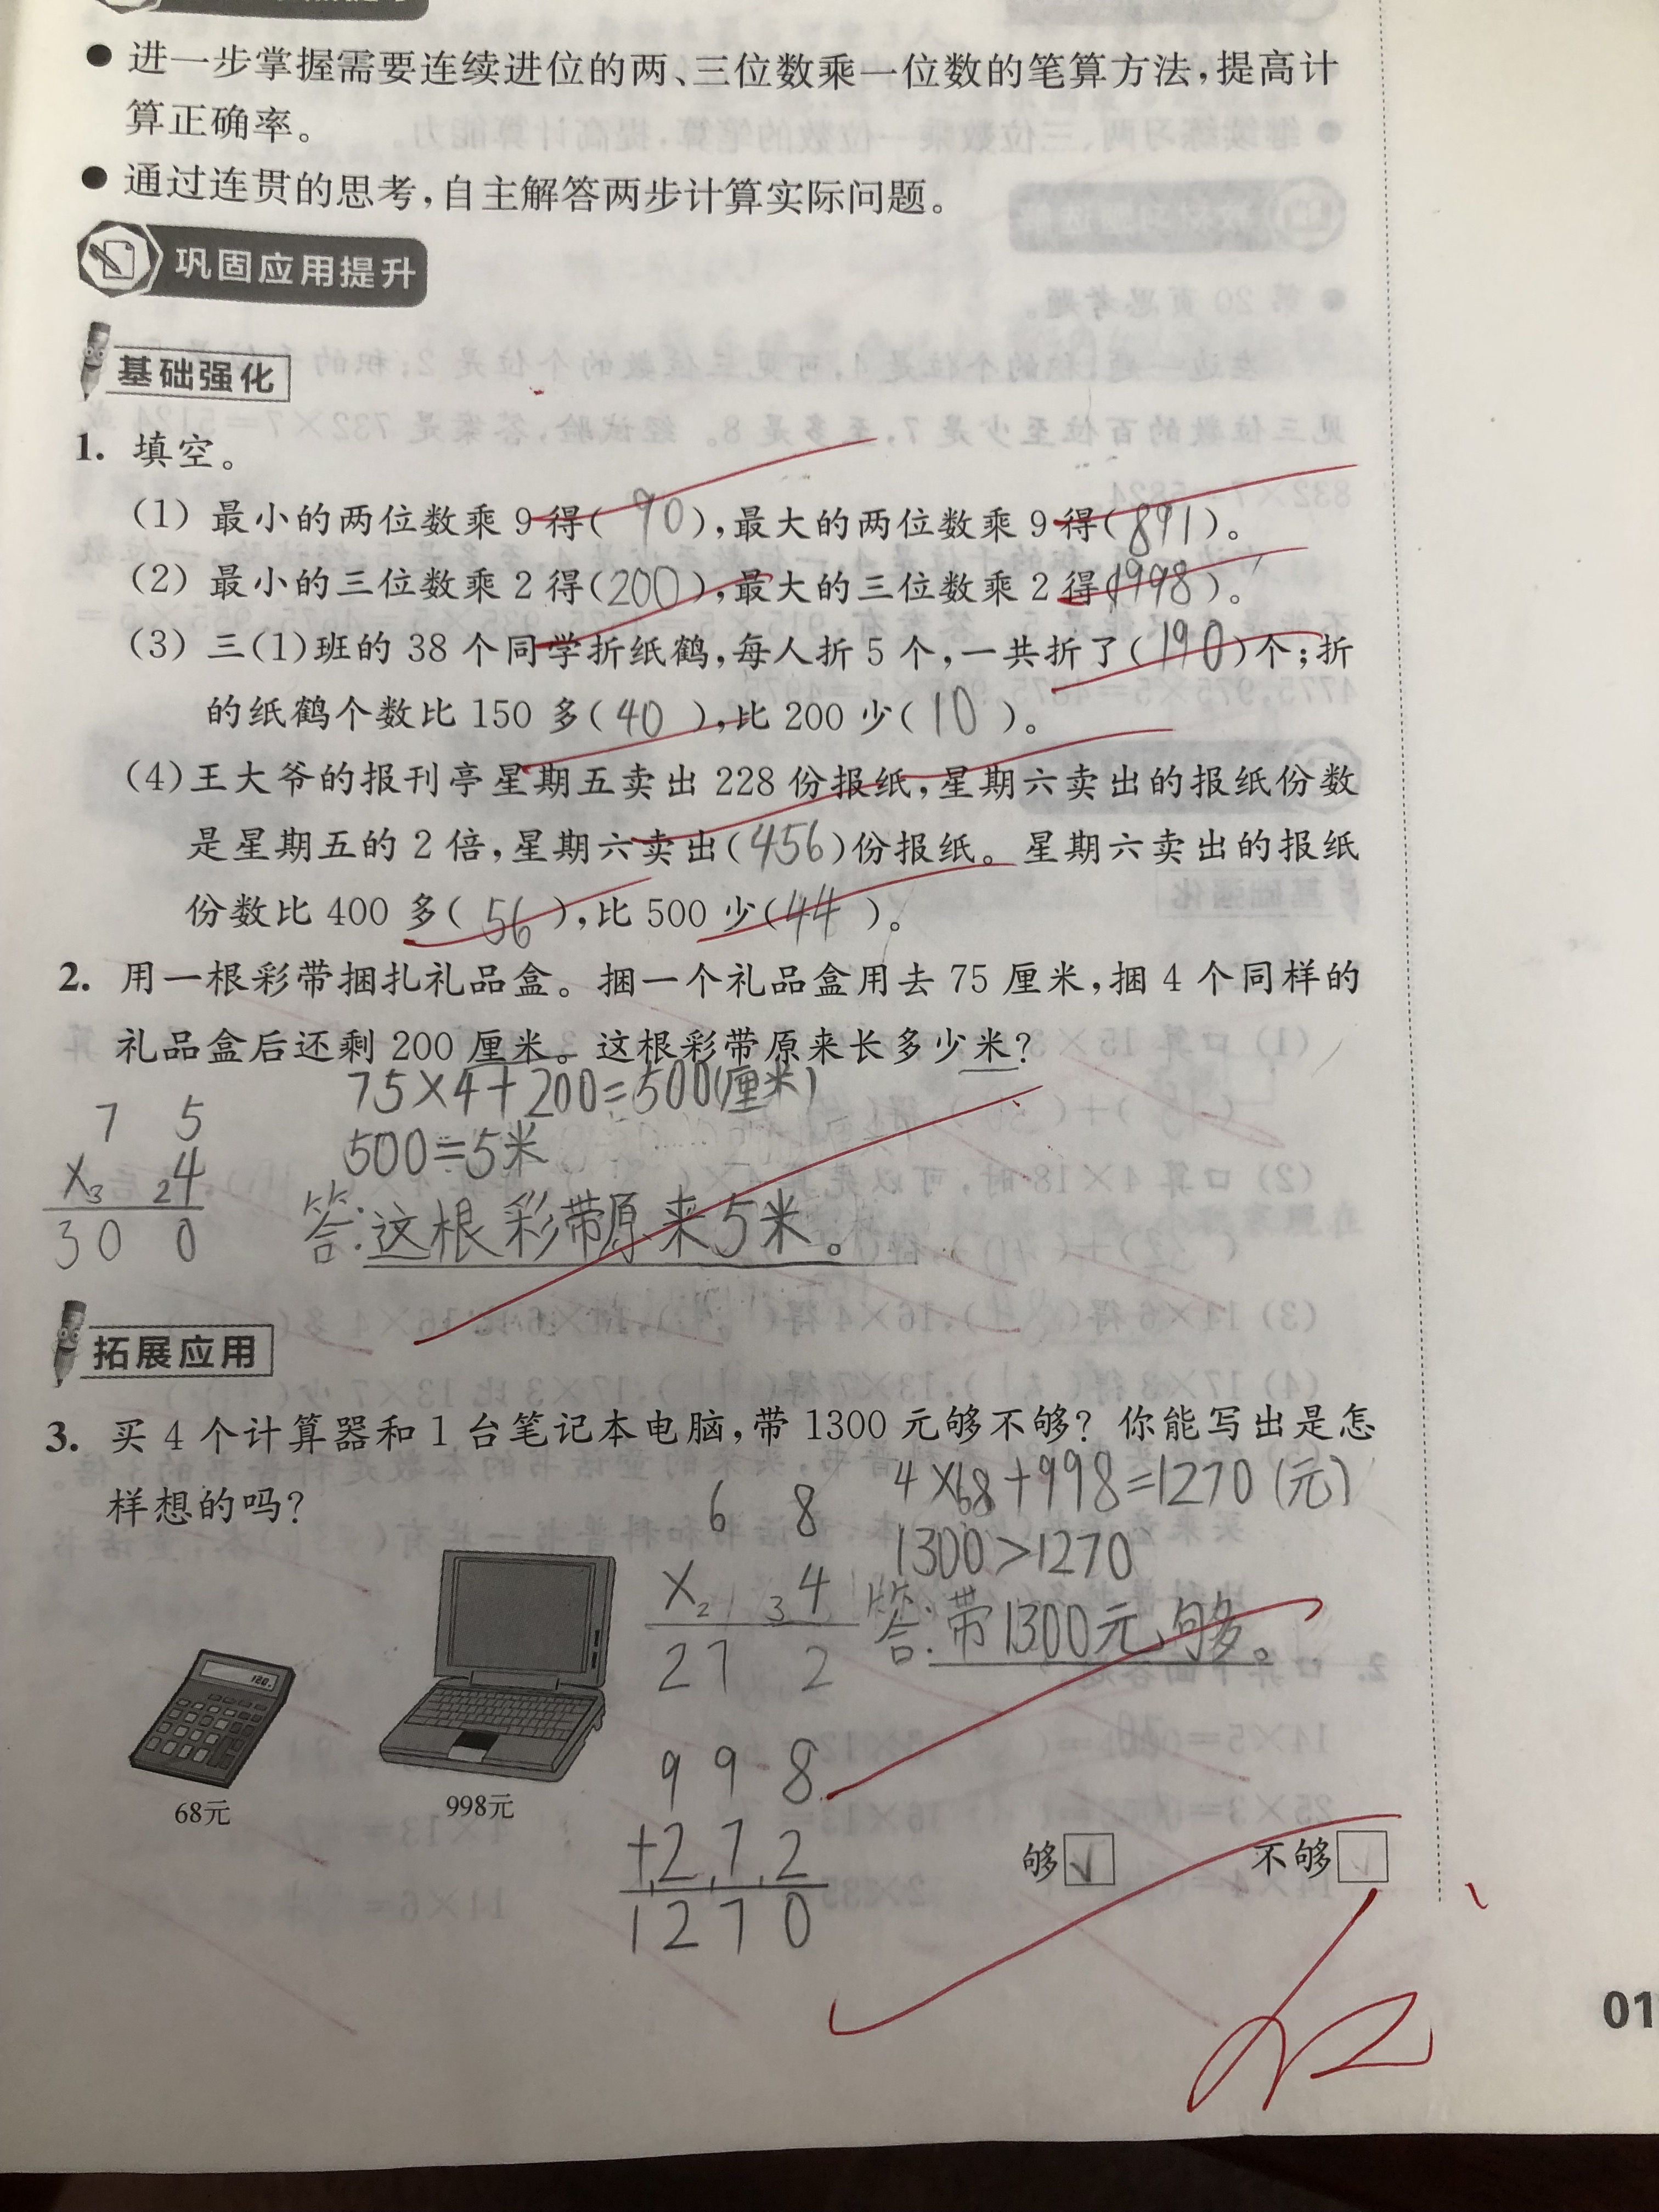 ● 进一步掌握需要连续进位的两、三位数乘一位数的笔算方法,提高计
算正确率。
● 通过连贯的思考,自主解答两步计算实际问题。
巩固应用提升
基础强化
1. 填空。
(1) 最小的两位数乘 9 得( 90 ),最大的两位数乘 9 得( 891 )。
(2) 最小的三位数乘 2 得( 200 ),最大的三位数乘 2 得( 1998 )。
(3) 三(1)班的 38 个同学折纸鹤,每人折 5 个,一共折了( 190 )个;折
的纸鹤个数比 150 多( 40 ),比 200 少( 10 )。
(4) 王大爷的报刊亭星期五卖出 228 份报纸,星期六卖出的报纸份数
是星期五的 2 倍,星期六卖出( 456 )份报纸。星期六卖出的报纸
份数比 400 多( 56 ),比 500 少( 44 )。
2. 用一根彩带捆扎礼品盒。捆一个礼品盒用去 75 厘米,捆 4 个同样的
礼品盒后还剩 200 厘米。这根彩带原来长多少米?
75×4+200=500(厘米)
500=5米
答:这根彩带原来5米。
7 5
×3 2 4
3 0 0
拓展应用
3. 买 4 个计算器和 1 台笔记本电脑,带 1300 元够不够? 你能写出是怎
样想的吗?
4×68+998=1270(元)
1300>1270
答:带1300元,够。
6 8
×2 3 4
2 7 2
9 9 8
+2 7 2
1 2 7 0
120.
68元
998元
够 ✓ 不够
01